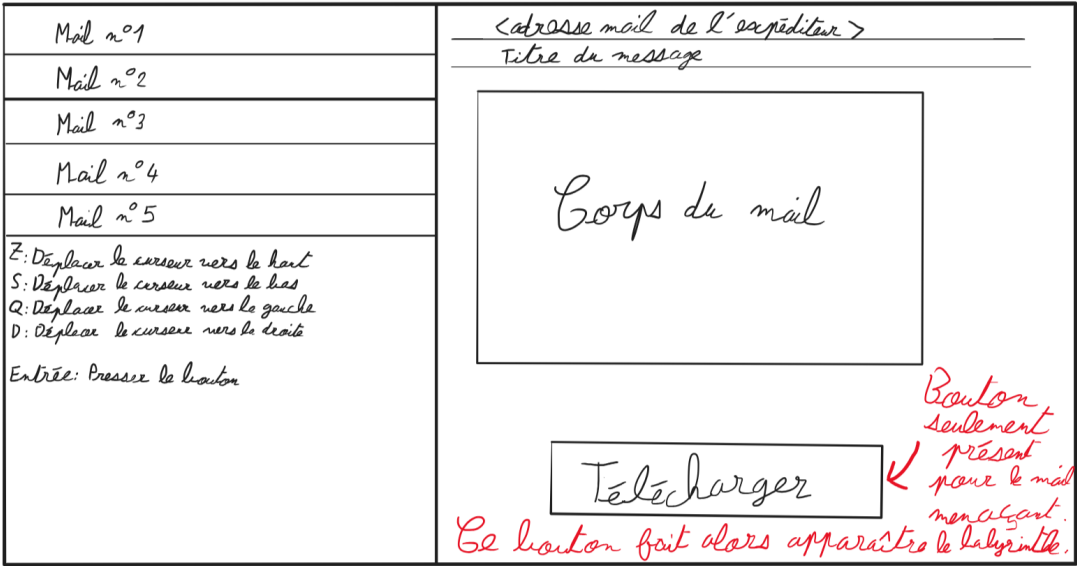 Mail n°1
Mail n°2
Mail n°3
Mail n°4
Mail n°5
Z: Déplacer le curseur vers le haut
S: Déplacer le curseur vers le bas
Q: Déplacer le curseur vers la gauche
D: Déplacer le curseur vers la droite
Entrée: Presser le bouton
<adresse mail de l'expéditeur>
Titre du message
Corps du mail
Télécharger
Bouton
seulement
présent
pour le mail
menaçant.
Ce bouton fait alors apparaître le labyrinthe.